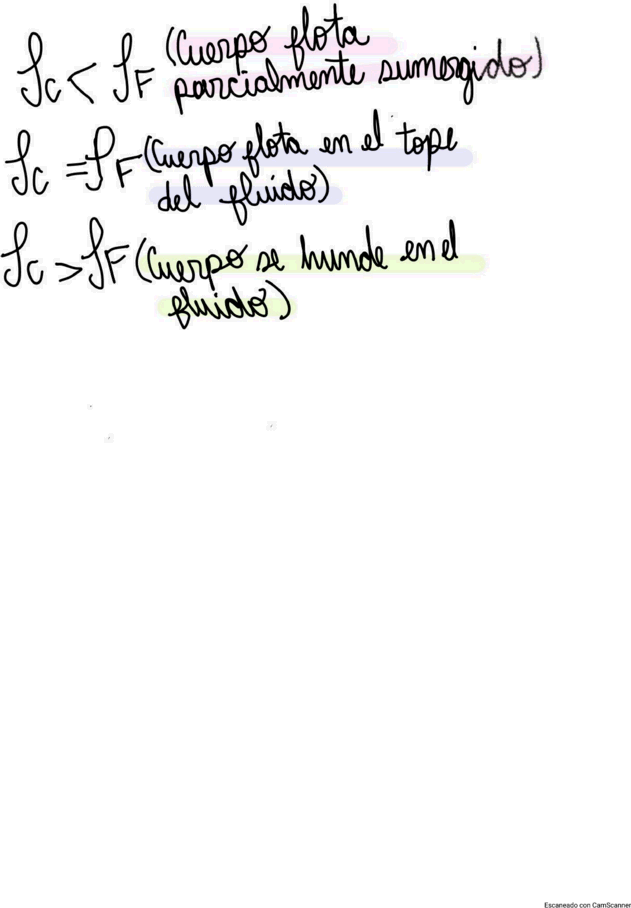 ρc < ρF (Cuerpo flota
parcialmente sumergido)
ρc = ρF (Cuerpo flota en el tope
del fluido)
ρc > ρF (Cuerpo se hunde en el
fluido)
Escaneado con CamScanner